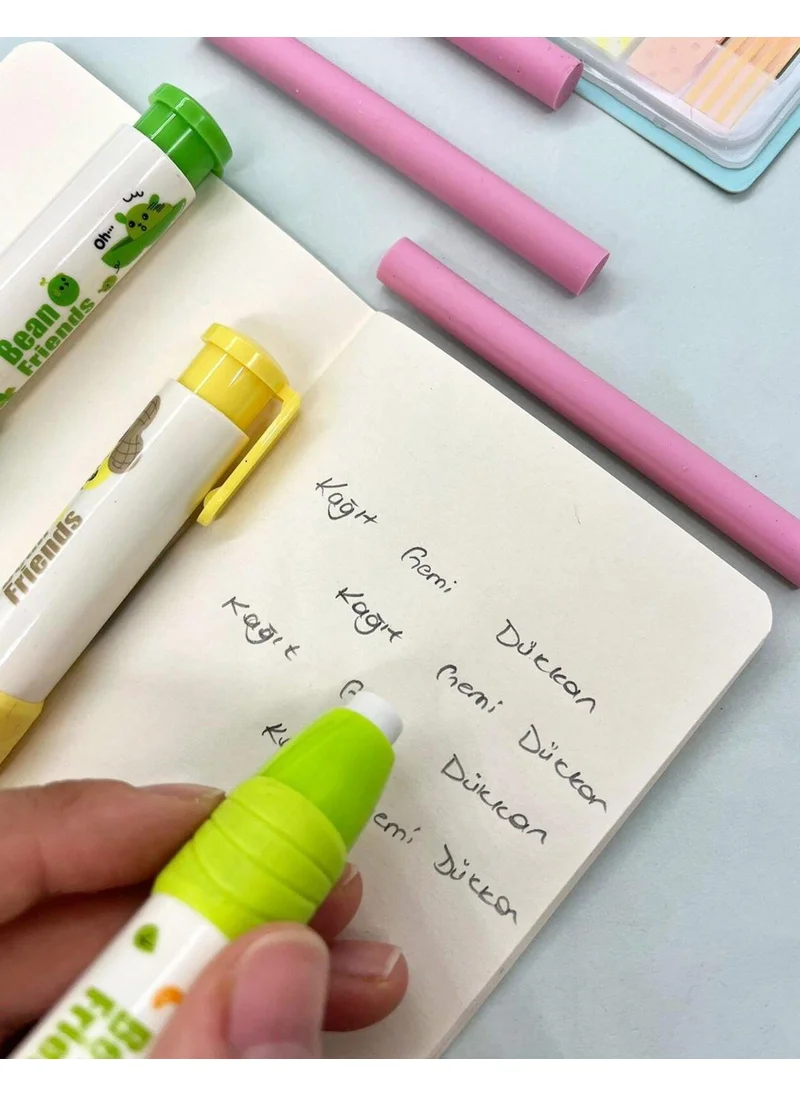 Oh...
Bean
Friends
Friends
Kağıt Gemi Dükkan
Kağıt Gemi Dükkan
Kağıt Dükkan
Dükkan